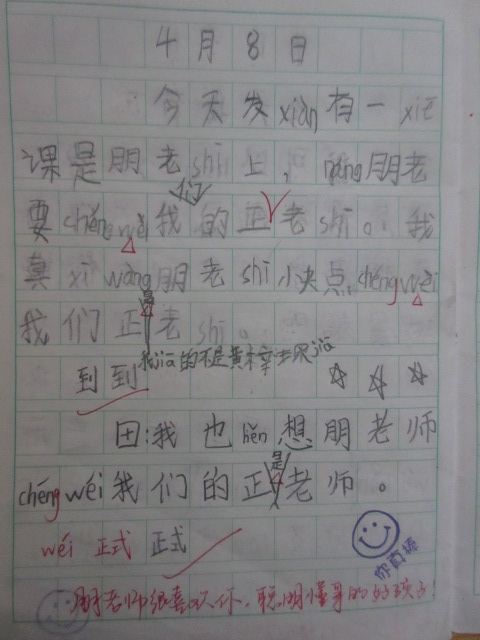 4月8日
今天发xiàn有一xiē
课是朋老shī上,néng朋老
们
要chéng wéi我的正老shī。我
真xī wàng朋老shī小央点,chéng wéi
是
我们正老shī。
到到
田:我也hěn想朋老师
是
chéng wéi我们的正老师。
wéi 正式 正式
你真棒
朋老师很喜欢你,聪明懂事的好孩子!